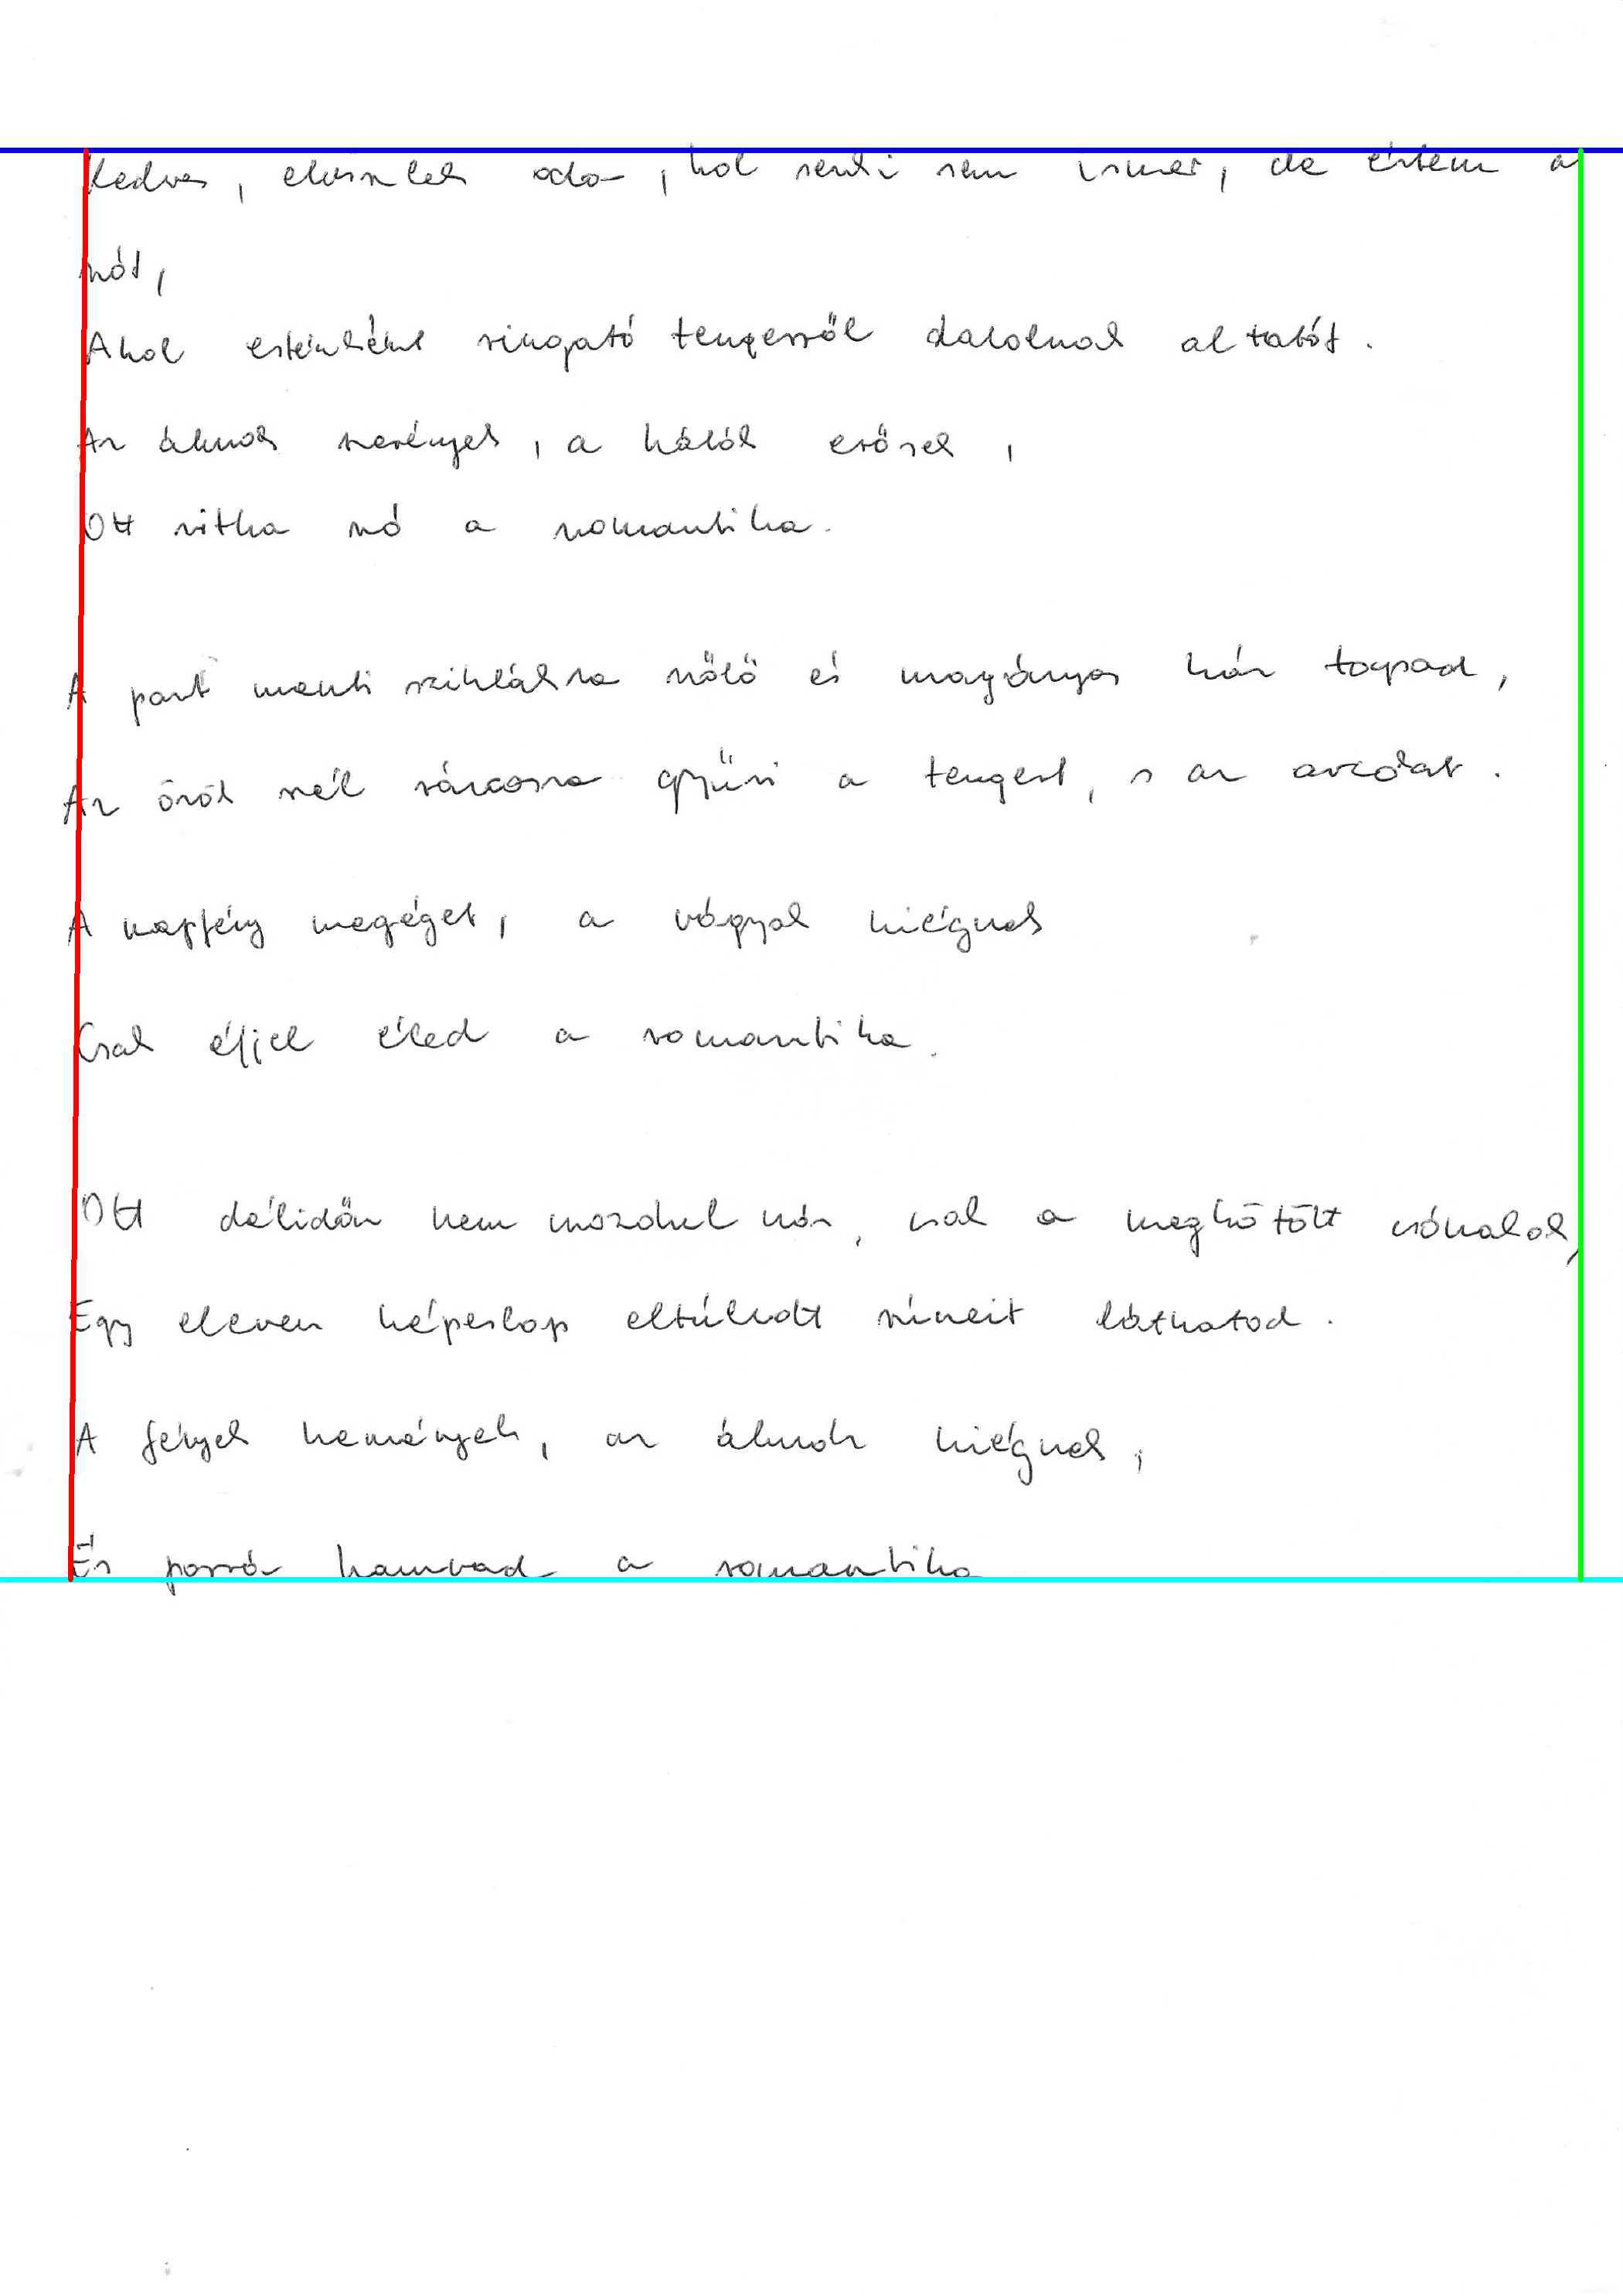 Kedves, elviszlek oda, hol senki sem ismer, de értem a
szót,
Ahol esténként ringató tengerről dalolnak altatót.
Az álmok szerények, a hálók erősek,
Ott ritka szó a romantika.
A part menti sziklákra szőlő és magányos ház tapad,
Az örök szél ráncosra gyűri a tengert, s az arcodat.
A napfény megéget, a vágyak kiégnek
Csak éjjel éled a romantika.
Ott délidőn nem mozdul más, csak a megkötött csónakok,
Egy eleven képeslap eltúlzott színeit láthatod.
A fények kemények, az álmok kiégnek,
És porrá hamvad a romantika